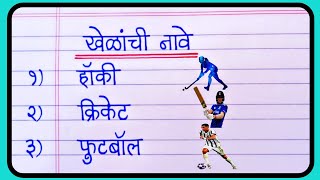 खेळांची नावे
१) हॉकी
२) क्रिकेट
३) फुटबॉल